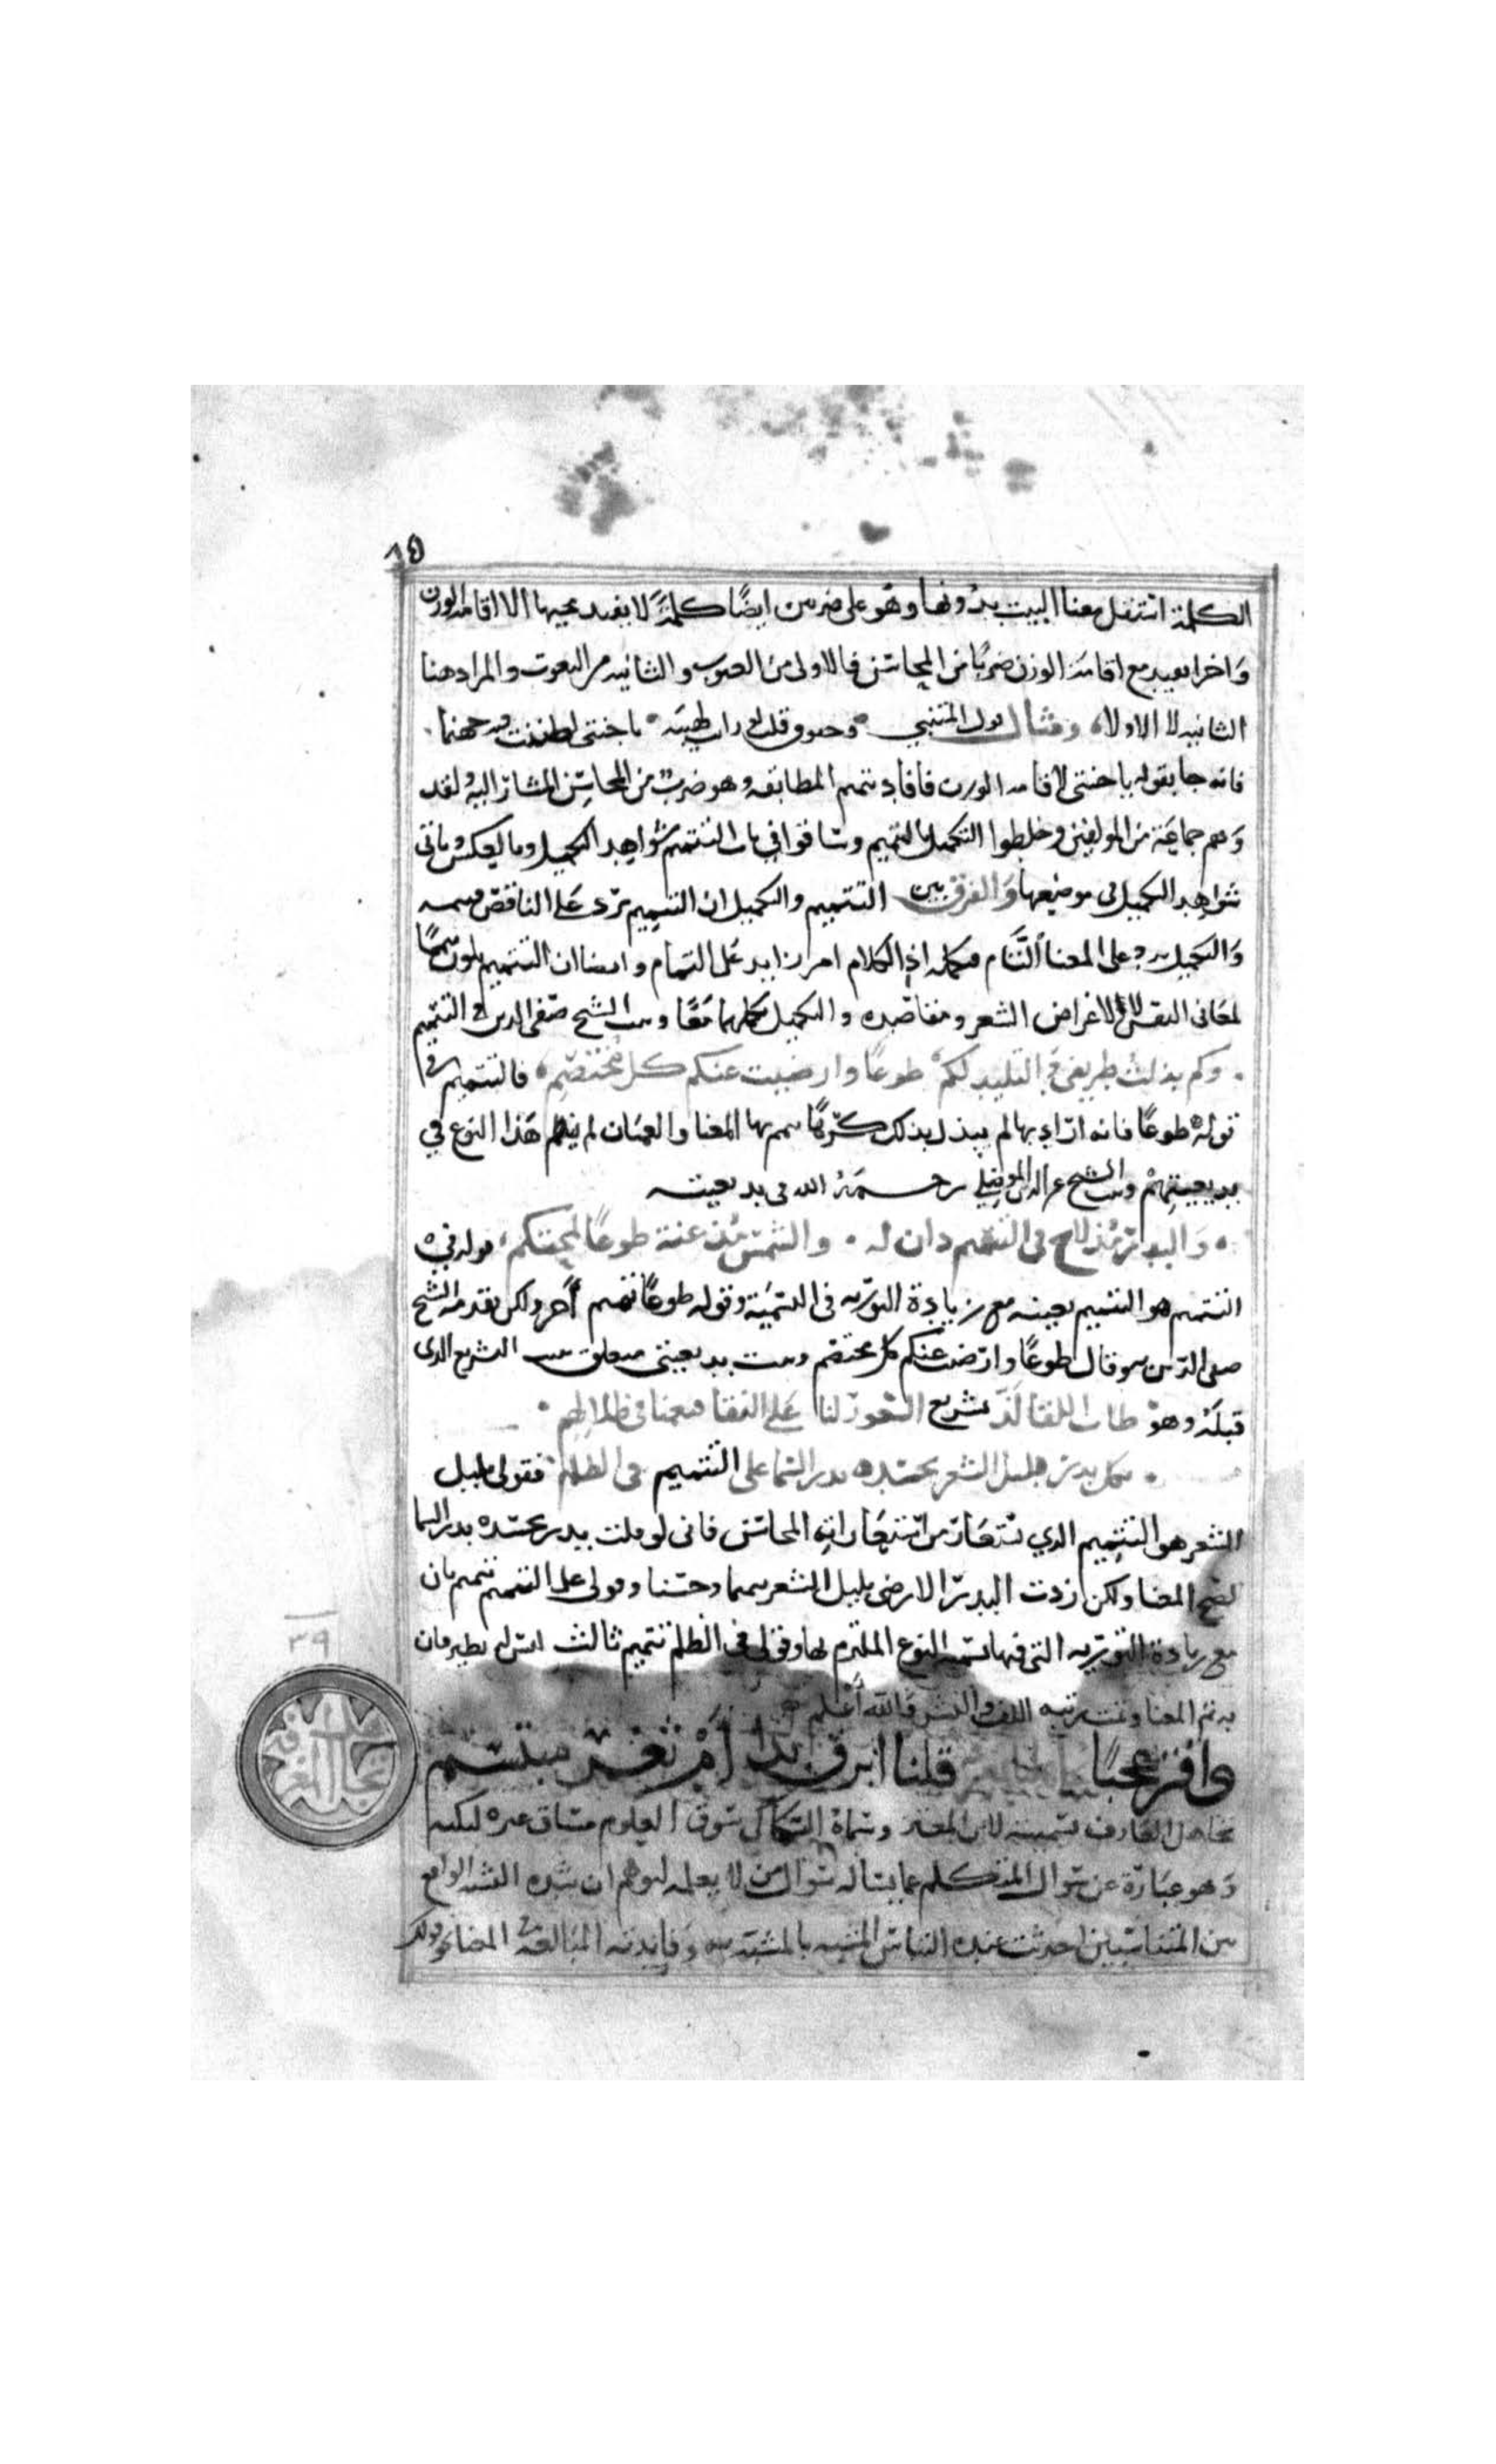 ١٥
الكلمة استقل معنا البيت بدونها وهو على ضربين ايضًا كلمة لا يفيد مجيها الا اقامة الوزن
وَاخرا يفيد مع اقامَة الوزن ضربًا من المحاسن فالاولى من العيوب والثانيه من النعوت والمراد هنا
الثانيه لا الاولا، ومثال قول المتنبي وخفوق قلب لو رايت لهيبه يا جنتى لظننت فيه جهنما
فانه جا بقوله يا جنتى لاقامه الوزن فافاد تتميم المطابقه وهو ضربٌ من المحاسن المشار اليه لقد
وَهم جماعَة من المولفين وخلطوا التكميل بالتتميم وساقوا في باب التتميم شواهد التكميل وبالعكس وياتى
شواهد التكميل فى موضعها وَالفرق بين التتميم والتكميل ان التتميم يرد عَلى الناقص فيتممه
وَالتكميل يرد على المعنا التَّام فيكمله اذ الكلام امر زايد عَلى التمام وايضا ان التتميم يكون متممًا
لمعَانى النفس لا لاغراض الشعر ومقاصده والتكميل يكملهما مَعًا وبيت الشيخ صَفى الدين فى التتميم
وكم بذلت طريفى والتليد لكم طوعًا وارضيت عنكم كل مُختصم، فالتتميم فى
قوله طوعًا فانه اراد بها لم يبذل بذلك كرهًا تمم بها المعنا والعميَان لم ينظم هَذا النوع في
بديعيتهمْ وبيت الشيخ عز الدين الموصلي رحمَهُ الله فى بديعيته
وَالبدر مُذ لاح فى التتميم دان له والشمس مُذ عنة طوعًا لمحتكم، قوله في
التتميم هو التتميم بعينه مع زيادة التوريه فى التسمية وقوله طوعًا تتميم آخر ولكن تقدمه الشيخ
صفى الدين وقال طوعًا وارضيت عنكم كل مختصم وبيت بديعيتى متعلق ببيت التشريع الدى
قبلَهُ وهوَ طاب اللقا لَذّ تشريع الشعور لنا عَلى النقا فنعمنا فى ظلالهم
بكل بدر بليل الشعر يحسده بدر السما على التتميم فى الظلم فقولى بليل
الشعر هو التتميم الدي تستعَار من استعَاراته المحاسن فانى لو قلت ببدر يحسده بدر السما
لصح المعنا ولكن زدت البدر الارضى بليل الشعر تتميما وحسنا وقولى على التتميم تتميم ثان
مع زيادة التوريه التى فيها تسمية النوع الملتزم لها وقولى فى الظلم تتميم ثالث
به تم المعنا وتمت رتبه اللف والنشر وَالله أعْلم
وافتر عجبًا قلنا ابرق بدا أمْ ثغر مبتسم
تجاهل العَارف تسميته لابن المعتز وسماهُ السكاكى سَوق المعلوم مساق غيره لنكته
وَهو عبَارة عن سوال المتكلم عما يعلمه سوال من لا يعلمه ليوهم ان شده الشبه الواقع
بين المتناسبين احدثت عنده التباس المشبه بالمشبه به وَفايدته المبالغة فى المعنا
٣٩
تجاهل العارف